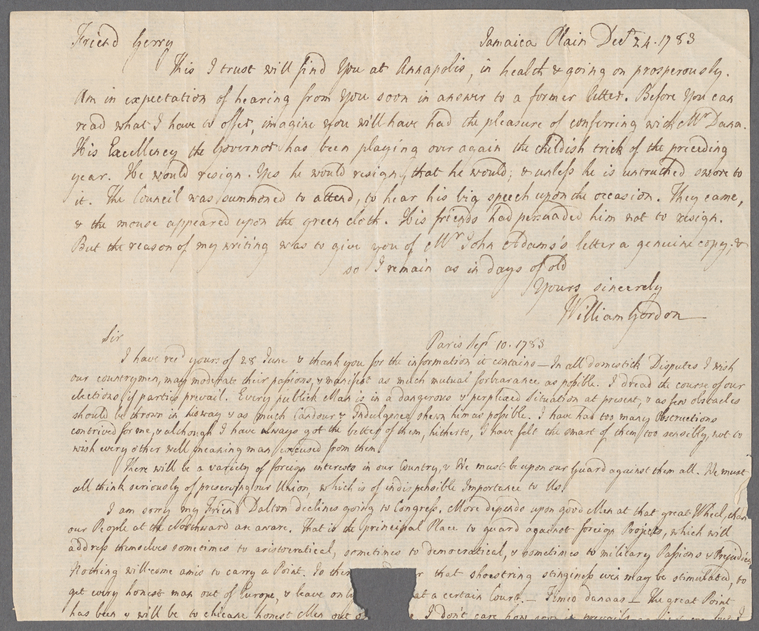 Friend Gerry Jamaica Plain Decr 24. 1783
This I trust will find You at Annapolis, in health & going on prosperously.
Am in expectation of hearing from You soon in answer to a former letter. Before You can
read what I have to offer, imagine You will have had the pleasure of conferring with Mr Dana.
His Excellency the Governor has been playing over again the childish trick of the preceding
year. He would resign. Yes he would resign, that he would; & unless he is untruthed swore to
it. The Council was summoned to attend, to hear his big speech upon the occasion. They came,
& the mouse appeared upon the green cloth. His friends had persuaded him not to resign.
But the reason of my writing was to give you of Mr John Adams's letter a genuine copy; &
so I remain as in days of old
Yours sincerely
William Gordon
Sir Paris Sepr 10. 1783
I have recd yours of 28 June & thank you for the information it contains — In all domestick Disputes I wish
our countrymen, may moderate their passions, & manifest as much mutual forbearance as possible. I dread the course of our
elections if parties prevail. Every publick Man is in a dangerous & perplexed situation at present, & as few obstacles
should be thrown in his way & as much Candour & Indulgence shewn him as possible. I have had too many Obstructions
contrived for me, & although I have always got the better of them, hitherto, I have felt the smart of them too sensibly, not to
wish every other well meaning man excused from them.
There will be a variety of foreign interests in our Country, & We must be upon our Guard against them all. We must
all think seriously of preserving our Union which is of indispensible Importance to Us.
I am sorry my Friend Dalton declines going to Congress. More depends upon good Men at that great Wheel, than
our People at the Northward are aware. That is the principal Place to guard against foreign Projects, which will
address themselves sometimes to aristocratical, sometimes to democratical, & sometimes to military Passions & Prejudices
Nothing will come amiss to carry a Point. In that shoestring stinginess may be stimulated, to
get every honest man out of Europe, & leave at a certain Court. — Timeo danaos — The great Point
has been & will be to chicane honest Men out I don't care how soon